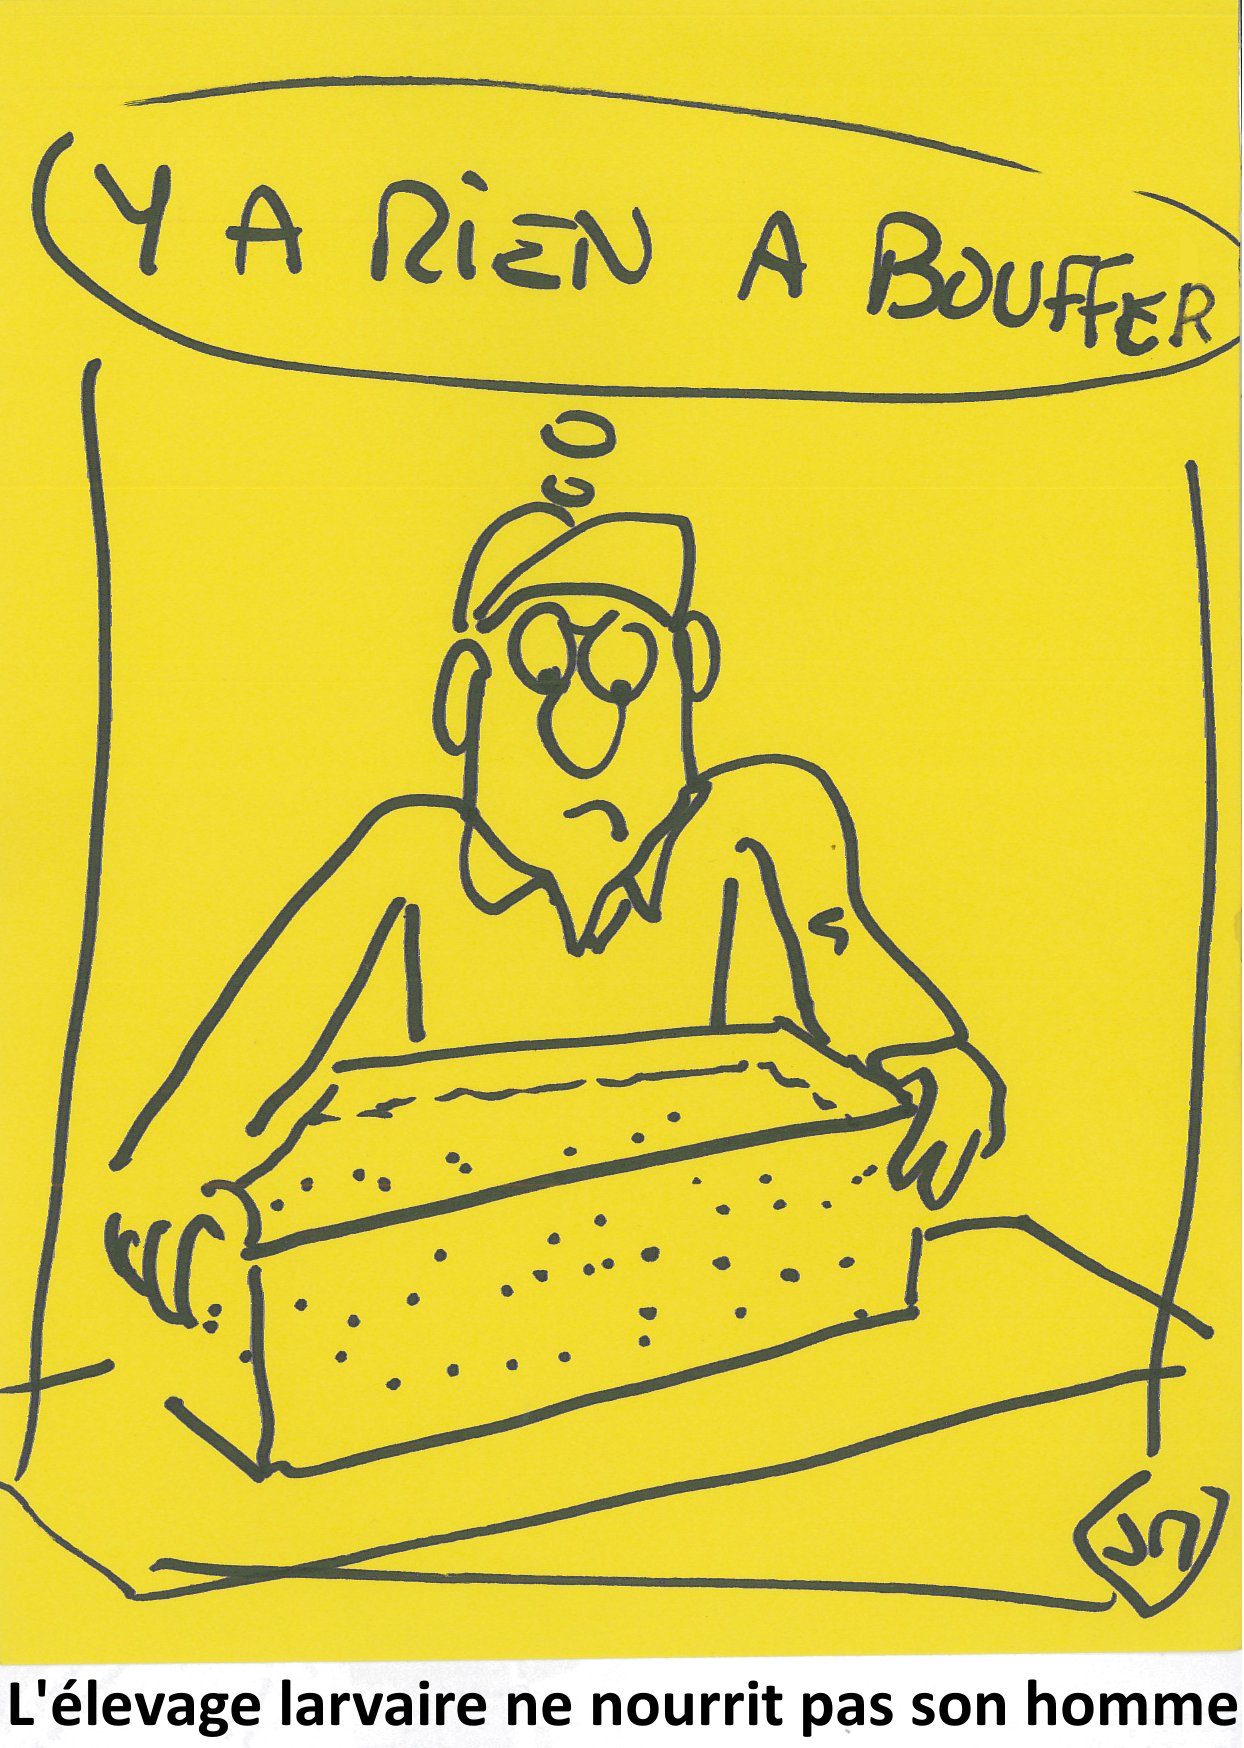 Y A RiEN A BOUFFER
L'élevage larvaire ne nourrit pas son homme